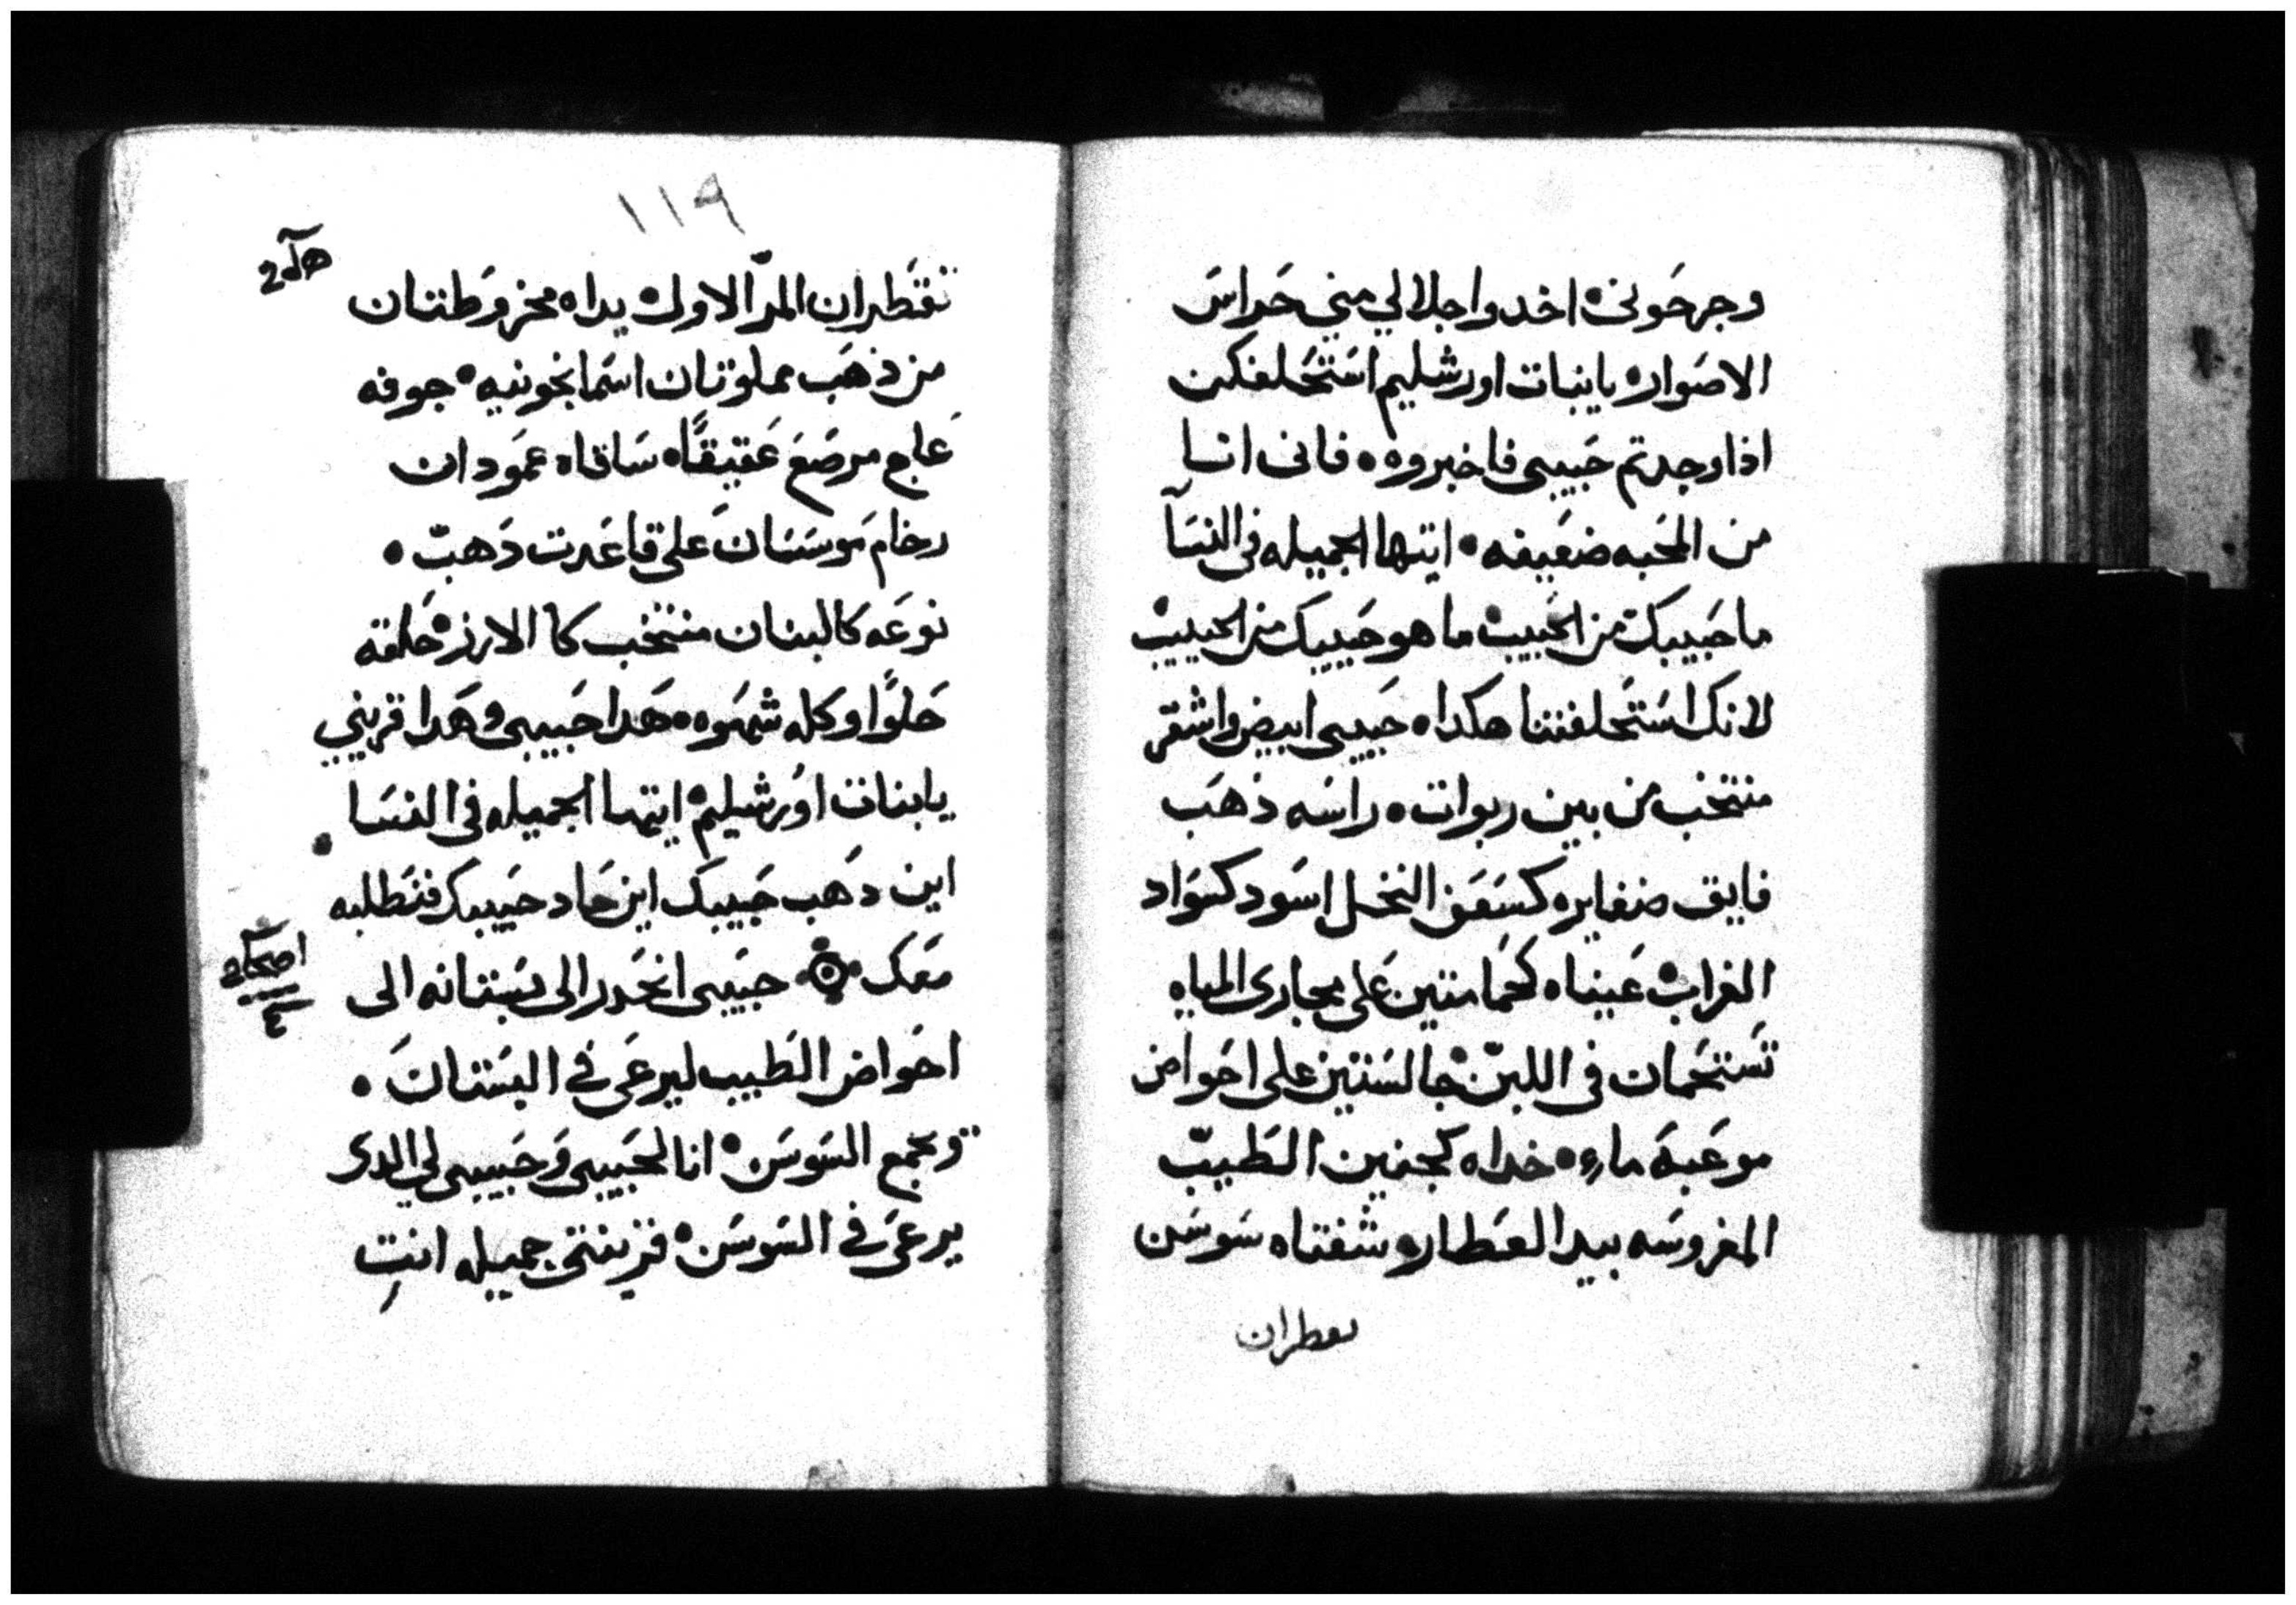 وجرحوني اخدوا جلالي مني حراس
الاصوار يابنات اورشليم استحلفكن
اذا وجدتم حبيبى فاخبروه فانى انا
من المحبه ضعيفه ايتها الجميله فى النسآ
ما حبيبك من الحبيب ما هو حبيبك من الحبيب
لانك استحلفتنا هكدا حبيبى ابيض واشقر
منتخب من بين ربوات راسه ذهب
فايق ضفايره كسعف النخل اسود كسواد
الغراب عيناه كحمامتين على مجارى المياه
تستحمان فى اللبن جالستين على احواض
موعبة ماء خداه كجفنين الطيب
المغروسه بيد العطار شفتاه سوسن
تقطران
١١٩
تقطران المر الاول يداه مخروطتان
من ذهب مملوتان اسمانجونيه جوفه
عاج مرصع عقيقًا ساقاه عمودان
رخام موسسان على قاعدت دهب
نوعه كالبنان منتخب كا الارز حلقه
حلوًا وكله شهوه هدا حبيبى وهدا قريبي
يابنات اورشليم ايتها الجميله فى النسا
اين دهب حبيبك اين حاد حبيبك فنطلبه
معك حبيبى انحدر الى بستانه الى
احواض الطيب ليرعى في البستان
ويجمع السوسن انا لحبيبى وحبيبى لي الدى
يرعى في السوسن قرينتى جميله انتِ